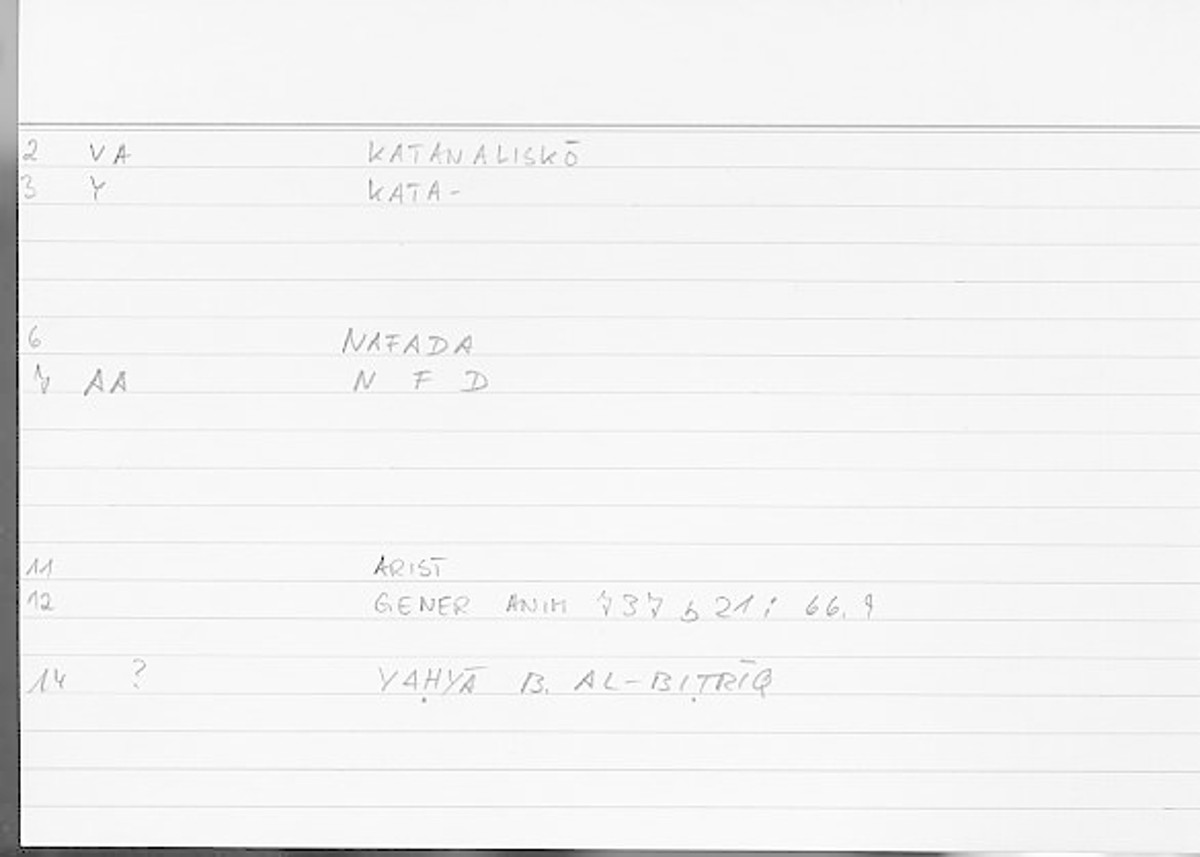 2 VA KATANALISKŌ
3 Y KATA-
6 NAFADA
7 AA N F D
11 ARIST
12 GENER ANIM 737 b 21 ; 66.9
14 ? YAḤYĀ B. AL-BIṬRĪQ